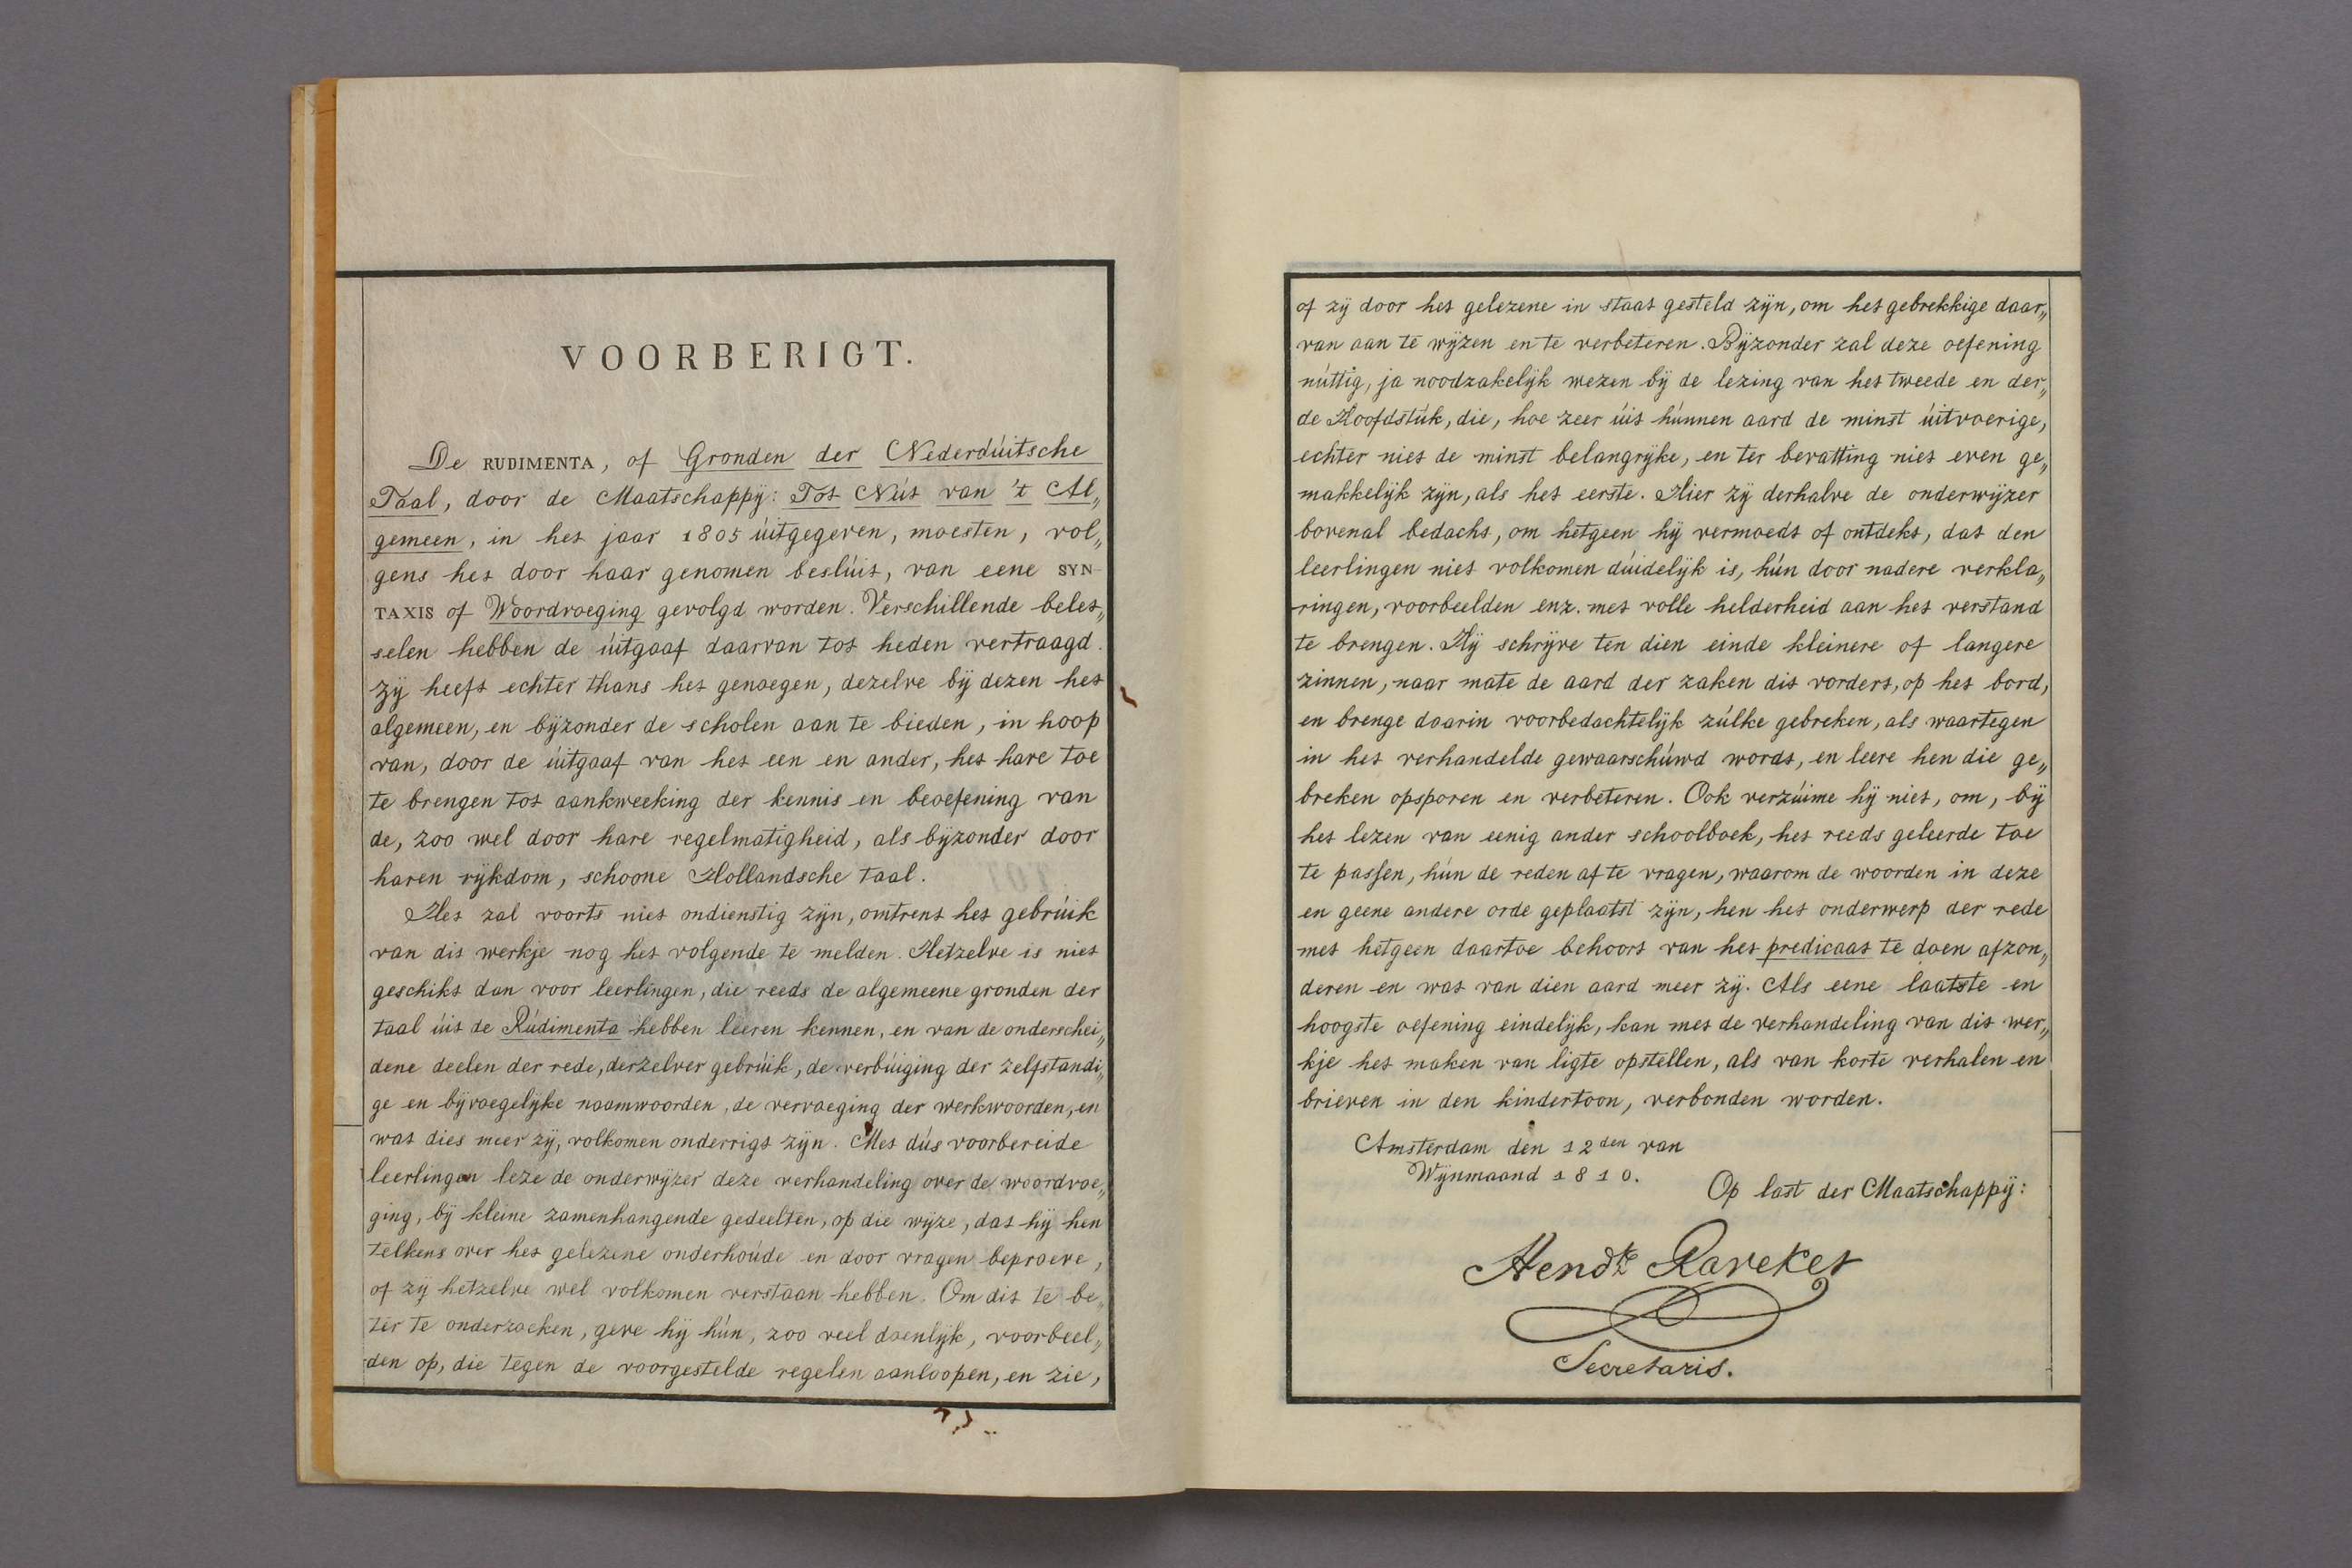 VOORBERIGT.
De RUDIMENTA, of Gronden der Nederdúitsche
Taal, door de Maatschappij: Tot Nút van 't Al„
gemeen, in het jaar 1805 úitgegeven, moesten, vol„
gens het door haar genomen beslúit, van eene SYN-
TAXIS of Woordvoeging gevolgd worden. Verschillende belet„
selen hebben de úitgaaf daarvan tot heden vertraagd.
Zij heeft echter thans het genoegen, dezelve bij dezen het
algemeen, en bijzonder de scholen aan te bieden, in hoop
van, door de úitgaaf van het een en ander, het hare toe
te brengen tot aankweeking der kennis en beoefening van
de, zoo wel door hare regelmatigheid, als bijzonder door
haren rijkdom, schoone Hollandsche taal.
Het zal voorts niet ondienstig zijn, omtrent het gebrúik
van dit werkje nog het volgende te melden. Hetzelve is niet
geschikt dan voor leerlingen, die reeds de algemeene gronden der
taal úit de Rúdimenta hebben leeren kennen, en van de onderschei„
dene deelen der rede, derzelver gebrúik, de verbúiging der zelfstandi„
ge en bijvoegelijke naamwoorden, de vervoeging der werkwoorden, en
wat dies meer zij, volkomen onderrigt zijn. Met dús voorbereide
leerlingen leze de onderwijzer deze verhandeling over de woordvoe„
ging, bij kleine zamenhangende gedeelten, op die wijze, dat hij hen
telkens over het gelezene onderhoúde en door vragen beproeve,
of zij hetzelve wel volkomen verstaan hebben. Om dit te be„
ter te onderzoeken, geve hij hún, zoo veel doenlijk, voorbeel„
den op, die tegen de voorgestelde regelen aanloopen, en zie,
of zij door het gelezene in staat gesteld zijn, om het gebrekkige daar„
van aan te wijzen en te verbeteren. Bijzonder zal deze oefening
núttig, ja noodzakelijk wezen bij de lezing van het tweede en der„
de Hoofdstúk, die, hoe zeer úit húnnen aard de minst úitvoerige,
echter niet de minst belangrijke, en ter bevatting niet even ge„
makkelijk zijn, als het eerste. Hier zij derhalve de onderwijzer
bovenal bedacht, om hetgeen hij vermoedt of ontdekt, dat den
leerlingen niet volkomen dúidelijk is, hún door nadere verkla„
ringen, voorbeelden enz. met volle helderheid aan het verstand
te brengen. Hij schrijve ten dien einde kleinere of langere
zinnen, naar mate de aard der zaken dit vordert, op het bord,
en brenge daarin voorbedachtelijk zúlke gebreken, als waartegen
in het verhandelde gewaarschúwd wordt, en leere hen die ge„
breken opsporen en verbeteren. Ook verzúime hij niet, om, bij
het lezen van eenig ander schoolboek, het reeds geleerde toe
te passen, hún de reden af te vragen, waarom de woorden in deze
en geene andere orde geplaatst zijn, hen het onderwerp der rede
met hetgeen daartoe behoort van het predicaat te doen afzon„
deren en wat van dien aard meer zij. Als eene laatste en
hoogste oefening eindelijk, kan met de verhandeling van dit wer„
kje het maken van ligte opstellen, als van korte verhalen en
brieven in den kindertoon, verbonden worden.
Amsterdam den 12den van
Wijnmaand 1810.
Op last der Maatschappij:
Hendk Ravekes
Secretaris.